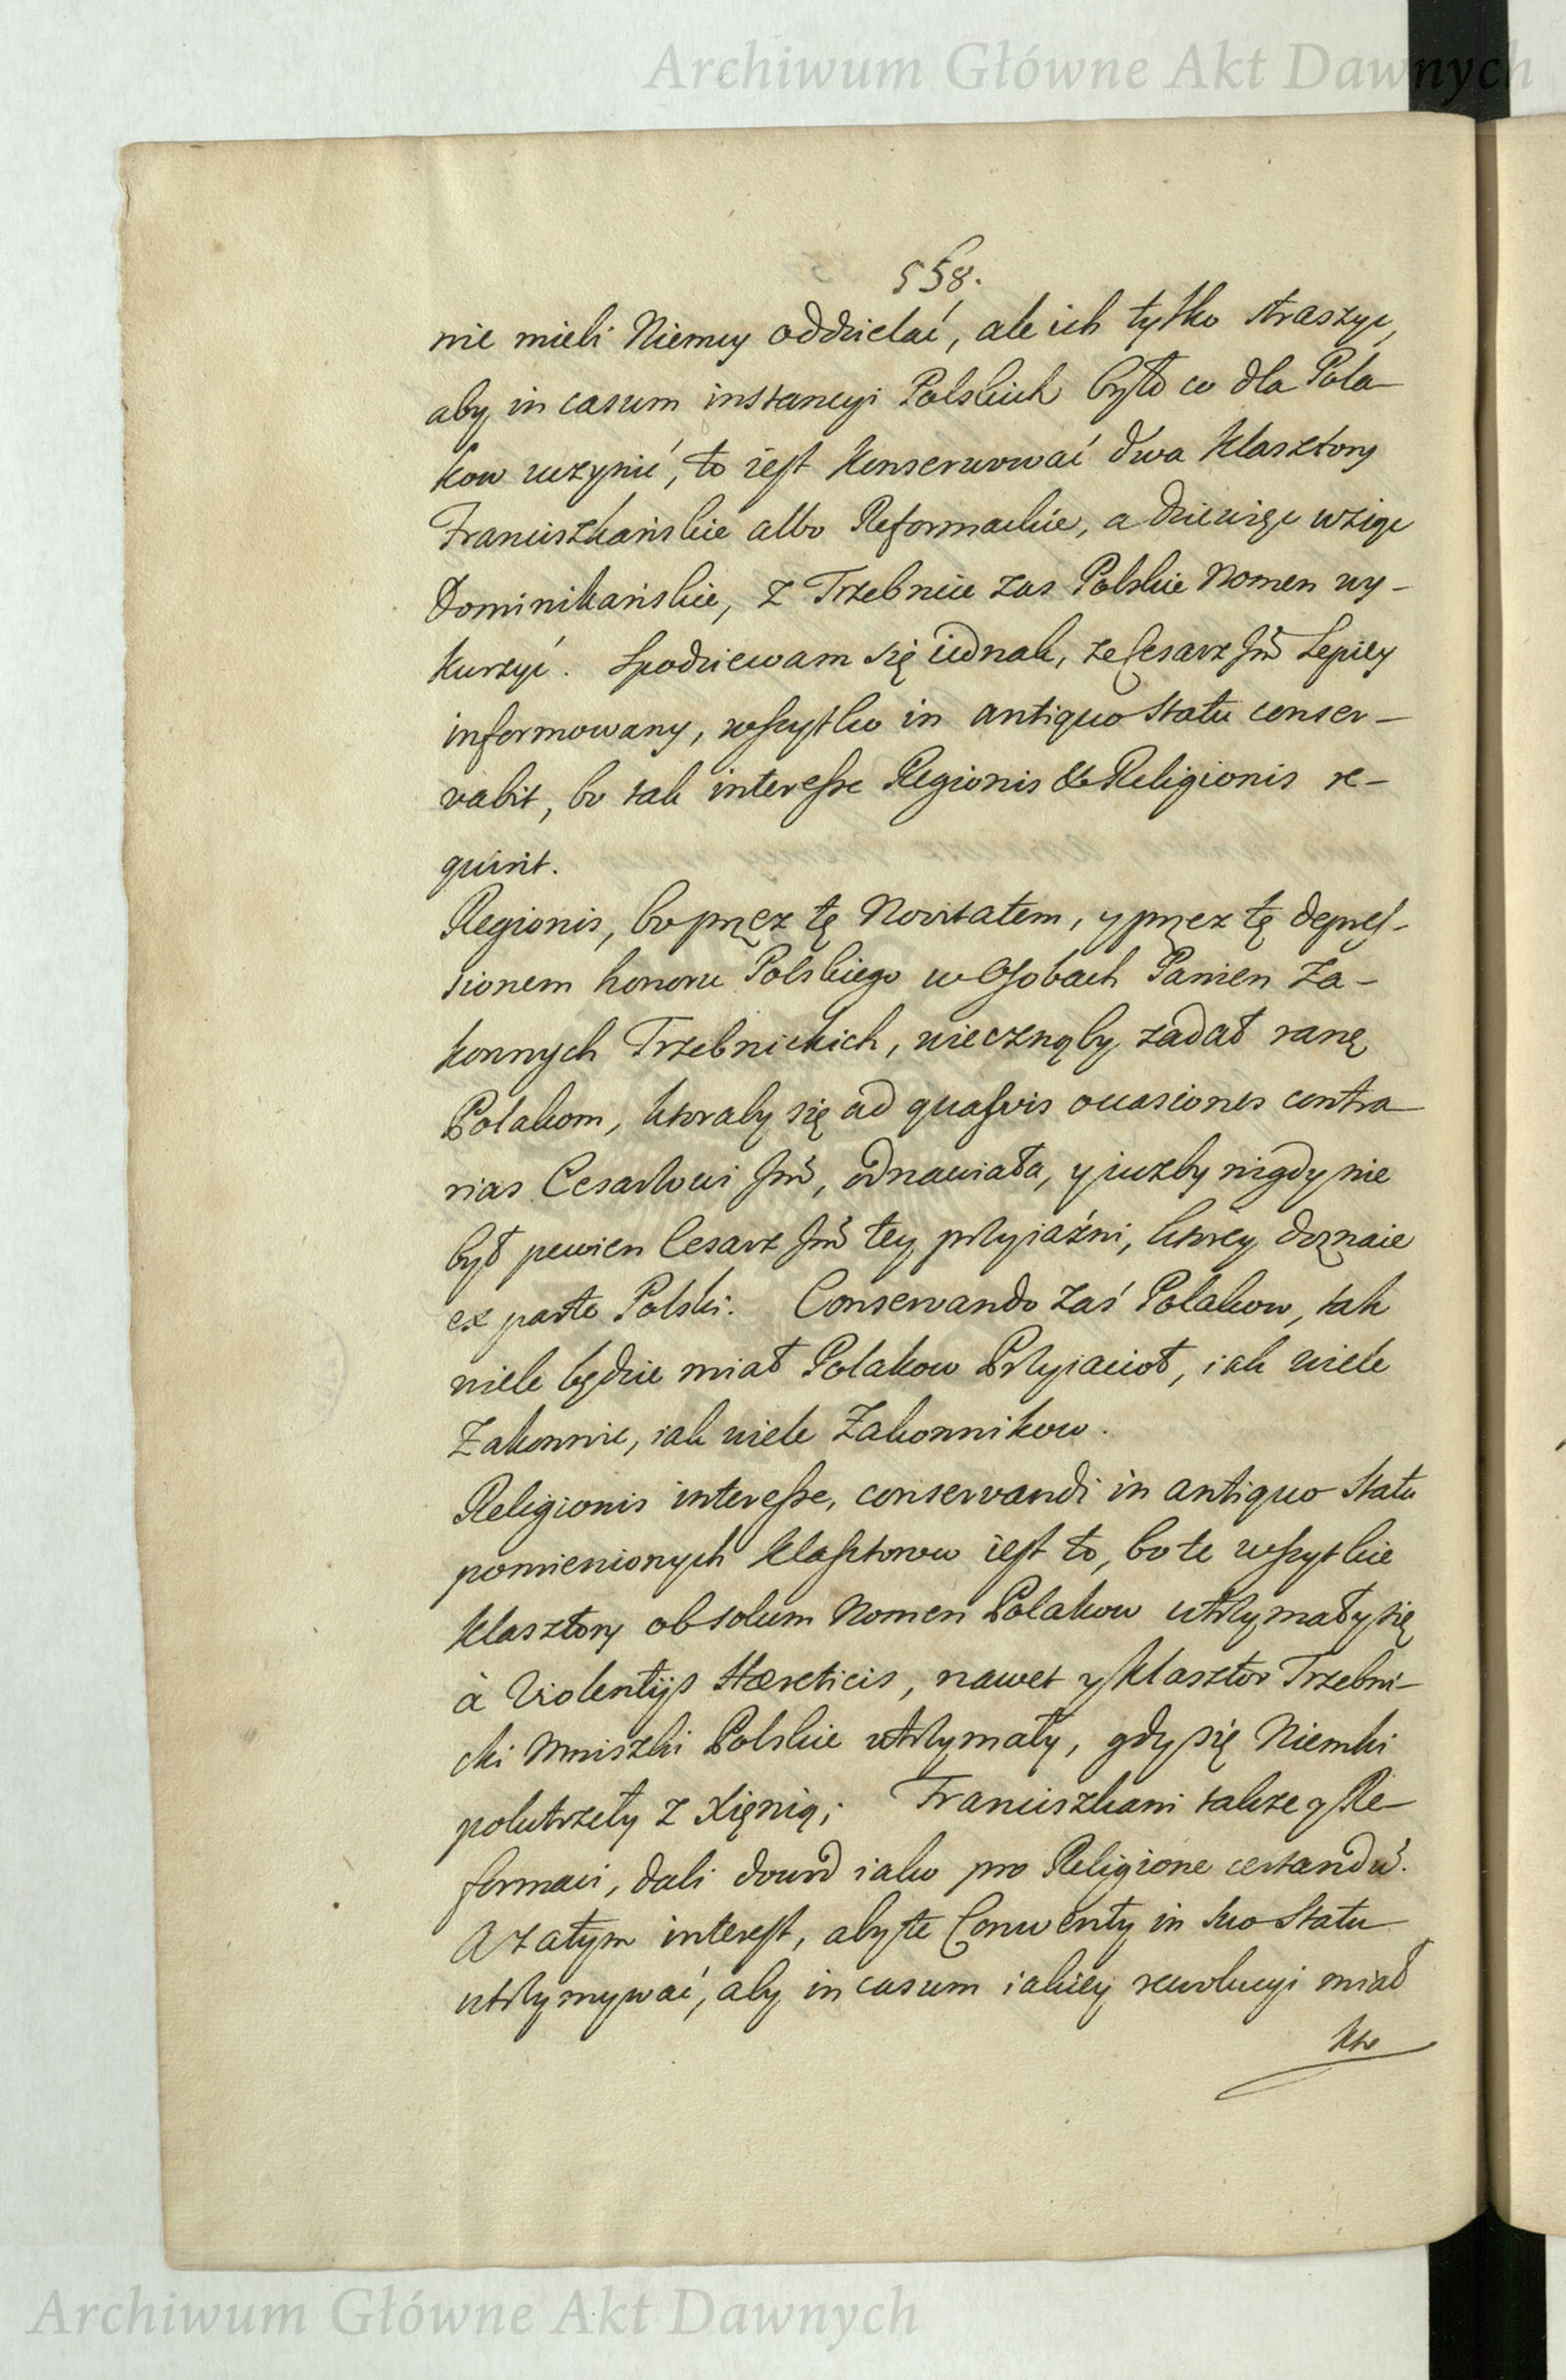 Archiwum Główne Akt Dawnych
558.
nie mieli Niemcy oddzielać, ale ich tylko straszyć,
aby in casum instancyi Polskich było co dla Pola-
kow uczynić, to iest konserwować dwa klasztory
Franciszkańskie albo Reformackie, a dziewięć wziąć
Dominikańskie, z Trzebnice zas Polskie Nomen wy-
kurzyć. Spodziewam się iednak, ze Cesarz Jmć Lepiey
informowany, wszytko in antiquo statu conser-
vabit, bo tak interesse Regionis & Religionis re-
quirit.
Regionis, bo przez tę Novitatem, y przez tę depres-
sionem honoru Polskiego w Osobach Panien Za-
konnych Trzebnickich, wiecznąby zadał ranę
Polakom, ktoraby się ad quasvis occasiones contra-
rias Cesarzowi Jmć, odnawiała, y iuzby nigdy nie
był pewien Cesarz Jmć tey przyiaźni, ktorey doznaie
ex parte Polski. Conservando zaś Polakow, tak
wiele będzie miał Polakow Przyiacioł, iak wiele
Zakonnic, iak wiele Zakonnikow.
Religionis interesse, conservandi in antiquo Statu
pomienionych klasztorow iest to, bo te wszytkie
klasztory ob solum Nomen Polakow utrzymały się
à Violentijs Hæreticis, nawet y klasztor Trzebni-
cki Mniszki Polskie utrzymały, gdy się Niemki
polutrzały z Xięnią; Franciszkani takze y Re-
formaci, dali dowod iako pro Religione certandũ.
A zatym interest, aby te Conwenty in suo Statu
utrzymywać, aby in casum iakiey rewolucyi miał
kto
Archiwum Główne Akt Dawnych